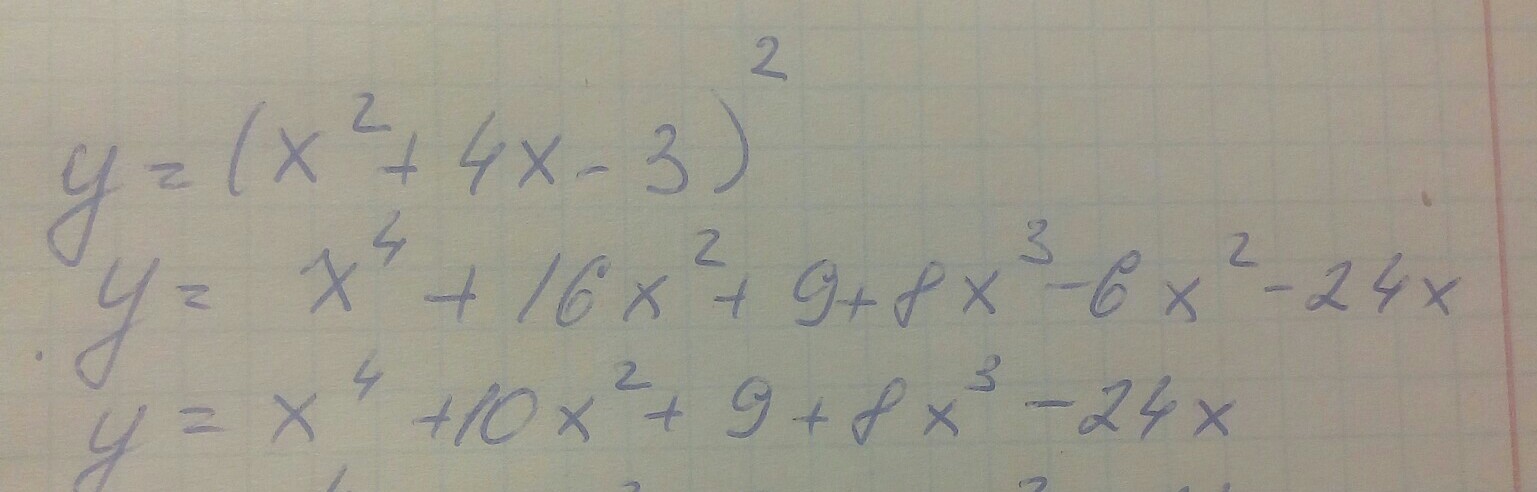 y = (x² + 4x - 3)²
y = x⁴ + 16x² + 9 + 8x³ - 6x² - 24x
y = x⁴ + 10x² + 9 + 8x³ - 24x